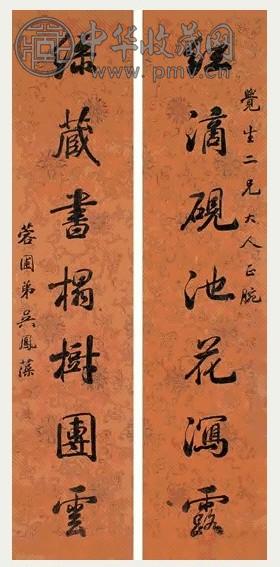 中华收藏网
www.pmv.cn
覺生二兄大人正腕
紅滴硯池花瀉露
綠藏書榻樹團雲
蓉圃弟吳鳳藻